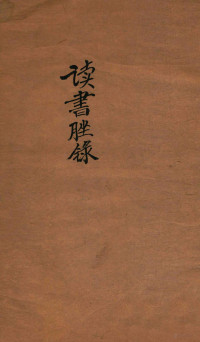 读書脞録